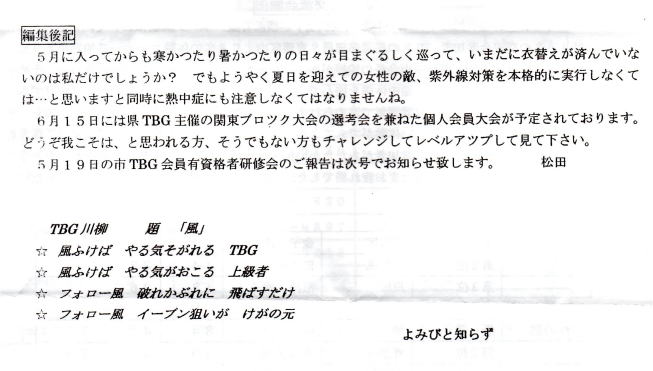 編集後記
５月に入ってからも寒かつたり暑かつたりの日々が目まぐるしく巡って、いまだに衣替えが済んでいな
いのは私だけでしょうか？　でもようやく夏日を迎えての女性の敵、紫外線対策を本格的に実行しなくて
は…と思いますと同時に熱中症にも注意しなくてはなりませんね。
６月１５日には県TBG主催の関東ブロツク大会の選考会を兼ねた個人会員大会が予定されております。
どうぞ我こそは、と思われる方、そうでもない方もチャレンジしてレベルアツプして見て下さい。
５月１９日の市TBG会員有資格者研修会のご報告は次号でお知らせ致します。　　松田
TBG川柳　　題　「風」
☆　風ふけば　やる気そがれる　TBG
☆　風ふけば　やる気がおこる　上級者
☆　フォロー風　破れかぶれに　飛ばすだけ
☆　フォロー風　イーブン狙いが　けがの元
よみびと知らず